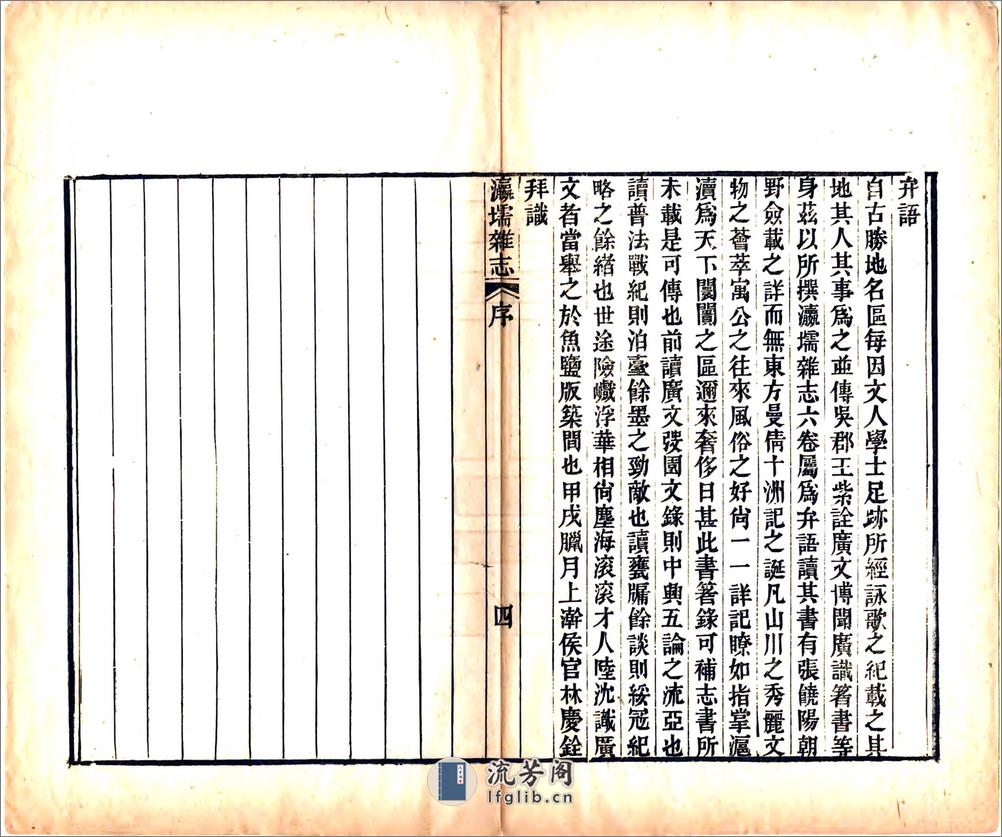 弁語
自古勝地名區每因文人學士足跡所經詠歌之紀載之其
地其人其事爲之並傳吳郡王紫詮廣文博聞廣識箸書等
身茲以所撰瀛壖雜志六卷屬爲弁語讀其書有張饒陽朝
野僉載之詳而無東方曼倩十洲記之誕凡山川之秀麗文
物之薈萃寓公之往來風俗之好尙一一詳記瞭如指掌滬
瀆爲天下闤闠之區邇來奢侈日甚此書箸錄可補志書所
未載是可傳也前讀廣文弢園文錄則中興五論之流亞也
讀普法戰紀則泊臺餘墨之勁敵也讀甕牖餘談則綏冦紀
略之餘緖也世途險巇浮華相尙塵海滚滚才人陸沈識廣
文者當舉之於魚鹽版築間也甲戌臘月上澣侯官林慶銓
拜識
瀛壖雜志 序 四
流芳阁
lfglib.cn